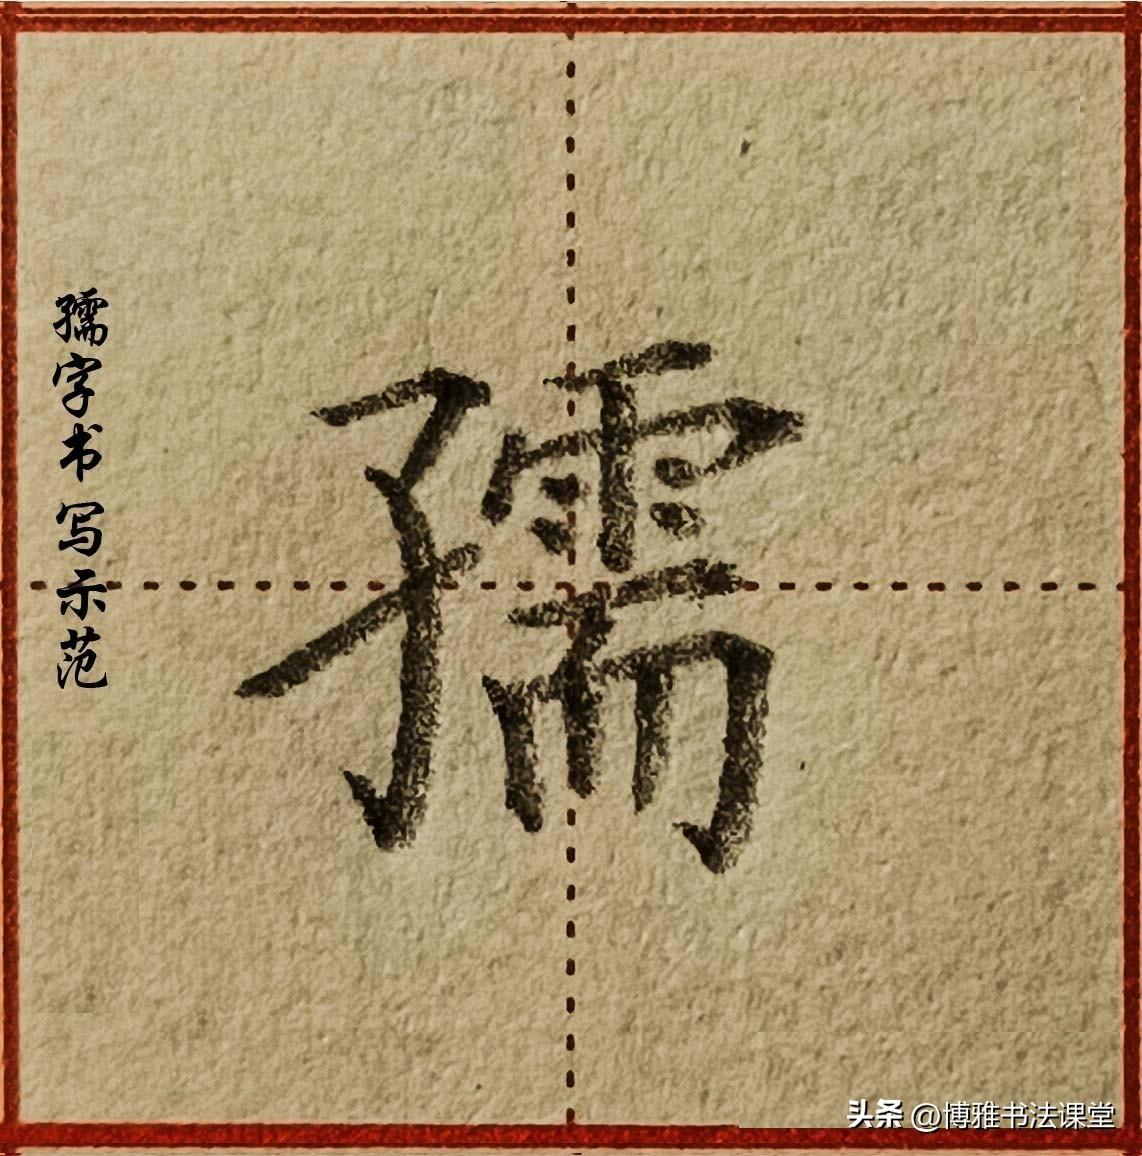 孺字书写示范
孺
头条 @博雅书法课堂